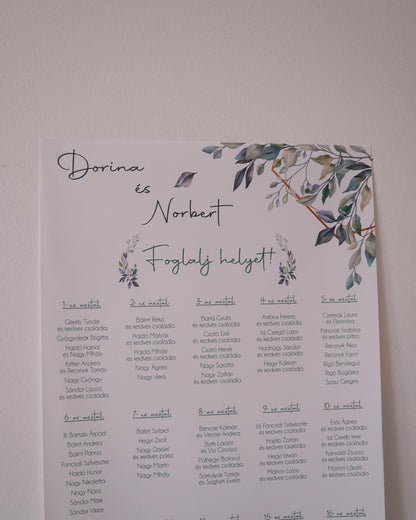 Dorina
és
Norbert
Foglalj helyet!
1- es asztal
Geréb Tünde
és kedves családja
Györgydeák Brigitta
Hajdó Hajnal
és Nagy Mihály
és Recsnyik Tamás
Nagy Gyöngyi
Sándor László
és kedves családja
2- es asztal
Bálint Réka
és kedves családja
Hajdó Mátyás
és kedves családja
Hajdó Mihály
és kedves családja
Nagy Ágnes
Nagy Vera
3- as asztal
Barta Gyula
és kedves családja
Csató Emil
és kedves családja
Csató Henrik
és kedves családja
Nagy Sarolta
Nagy Zoltán
és kedves családja
4- es asztal
Ambrus Ferenc
és kedves családja
Id. Csergő Lajos
és kedves családja
Hadnagy Sándor
és kedves családja
Hegyi Kálmán
és kedves családja
5- ös asztal
Csernák Laura
és Eleonóra
Fancsali Szabina
és kedves párja
Recsnyik Ákos
Recsnyik Fanni
Rigó Bendegúz
Rigó Boglárka
Szász Gergely
6- os asztal
Ifj. Bartalis Árpád
Bálint Andrea
Bálint Panna
Fancsali Szilveszter
Hajdó Hunor
Nagy Nikoletta
Nagy Nóra
Sándor Márk
Sándor Viktor
7- es asztal
Bálint Szilárd
Hegyi Zsolt
Nagy Dániel
és kedves párja
Nagy Martin
Nagy Mihály
8- as asztal
Bencze Kálmán
és Vecsei Andrea
Both Lóránt
és Vizi Orsolya
Pálhegyi Botond
és kedves családja
Somolyák Tamás
és Szigheti Evelin
9- es asztal
Id. Fancsali Szilveszter
és kedves családja
Hajdó Zoltán
és kedves családja
Hegyi István
és kedves családja
Márton Lajos
és kedves családja
10- es asztal
Erős Ágnes
és kedves családja
Id. Geréb Imre
és kedves családja
Kanyaró Zsuzsa
és kedves családja
Márton László
és kedves családja